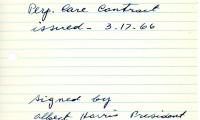 Perp. Care Contract
issued - 3.17.66
signed by
Albert Harris President